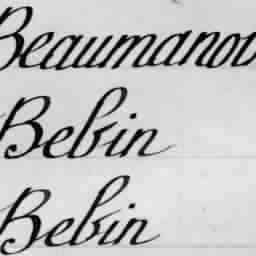 Beaumanoi
Bebin
Bebin